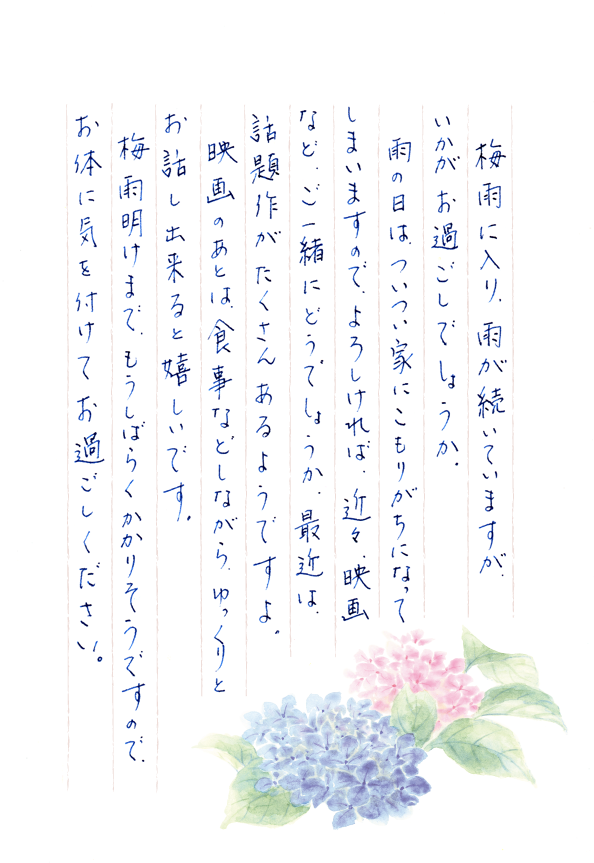 梅雨に入り、雨が続いていますが、
いかがお過ごしでしょうか。
雨の日は、ついつい家にこもりがちになって
しまいますので、よろしければ、近々、映画
など、ご一緒にどうでしょうか、最近は、
話題作がたくさんあるようですよ。
映画のあとは、食事などしながら、ゆっくりと
お話し出来ると嬉しいです。
梅雨明けまで、もうしばらくかかりそうですので、
お体に気を付けてお過ごしください。